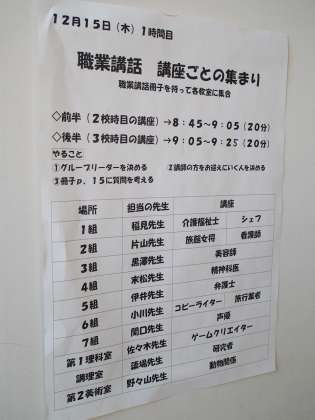 12月15日(木)1時間目
職業講話 講座ごとの集まり
職業講話冊子を持って各教室に集合
◇前半(2校時目の講座)→8:45~9:05(20分)
◇後半(3校時目の講座)→9:05~9:25(20分)
やること
①グループリーダーを決める ②講師の方をお迎えにいく人を決める
③冊子p.15に質問を考える
場所 担当の先生 講座
1組 稲見先生 介護福祉士 シェフ
2組 片山先生 旅館女将 看護師
3組 黒澤先生 美容師
4組 末松先生 精神科医
5組 伊井先生 弁護士
6組 小川先生 コピーライター 旅行業者
7組 関口先生 声優
第1理科室 佐々木先生 ゲームクリエイター
調理室 先生 研究者
第2美術室 野々山先生 動物関係